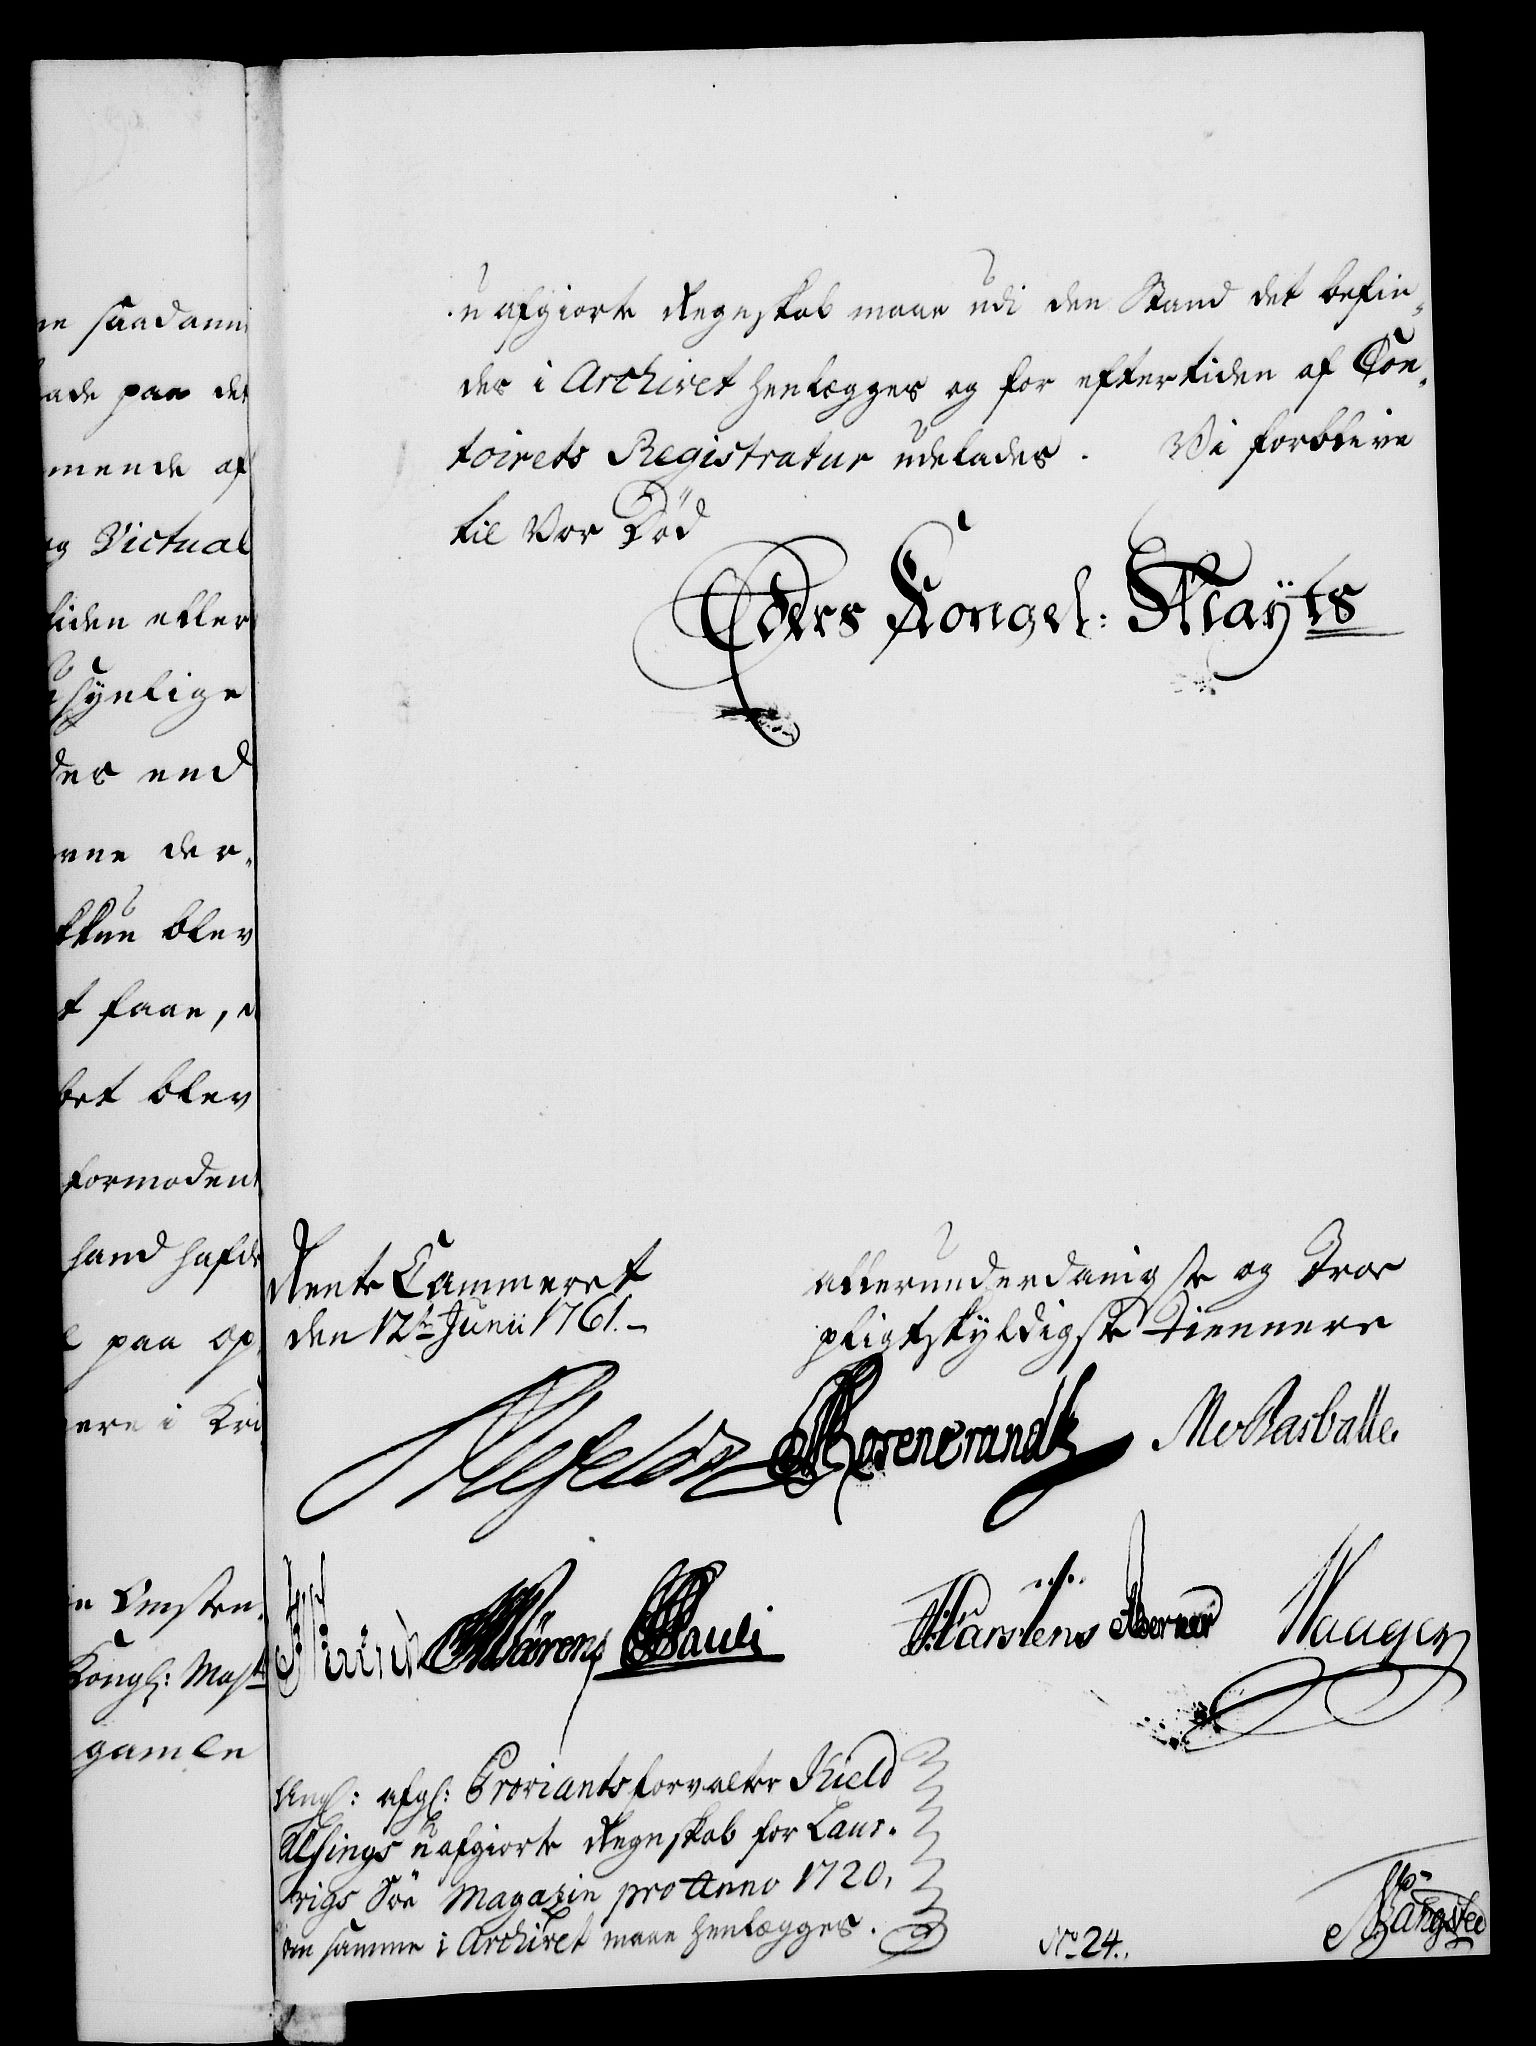 ne saadann
lade paa det
mende af
og Victual
tiden eller
synlige
des end
erne der-
kkun blev
t faae, e
bet blev
formoden
hand hafde
l paa op
gere i Kri
n Omsten-
Kongl: Mayts
gamle
uafgiorte Regnskab maae udi den Stand det befin-
des i Archivet henlægges og for eftertiden af Con-
toirets Registratur udelades. Vi forblive
til Vor Død
Eders Kongel: Mayts
Rente Cammeret
den 12te Junii 1761.
allerunderdanigste og Troe
pligtskyldigste Tiennere
Ahlefeldt Rosencrandtz Mv Barballe.
Wärens Pauli Karstens Berner Waager
Angl: afgl: Proviantsforvalter Kield
Alsings uafgiorte Regnskab for Laur-
vigs Söe Magazin pro Anno 1720,
om samme i Archivet maae henlægges.
No 24.
Bangsted